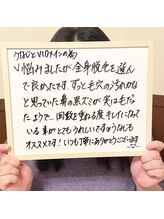 うなじとVIOメインの為
✓悩みましたが全身脱毛を選んで良かったです。ずっと毛穴の汚れかなと思っていた鼻の黒ズミが実は毛だったようで…回数を重ねる度キレイになっている事がとてもうれしいです♡うなじもオススメです！いつも丁寧にありがとうございます